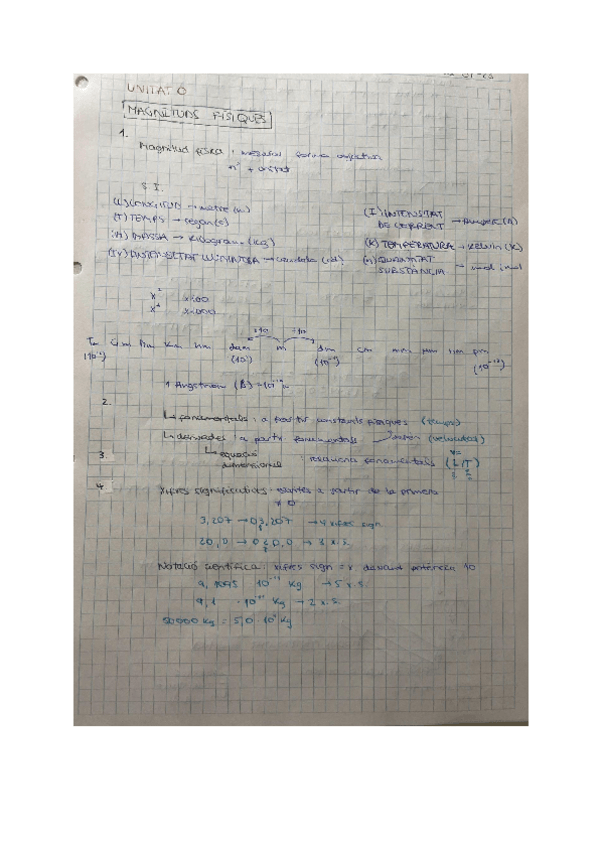 UNITAT 0
MAGNITUDS FÍSIQUES
1.
Magnitud física : forma
nº + unitat
S.I.
(L) LONGITUD → metre (m)
(T) TEMPS → segon (s)
(M) MASSA → Kilogram (Kg)
(Iv) INTENSITAT LUMÍNICA → candela (cd)
(I) INTENSITAT DE CORRENT → Ampere (A)
(K) TEMPERATURA → Kelvin (K)
(n) QUANTITAT SUBSTÀNCIA → mol
x² x100
x³ x1000
:10 :10
Tm Gm Mm Km hm dam m dm cm mm µm nm pm
(10¹) (10⁻¹) (10⁻¹²)
1 Angstrom (Å) = 10⁻¹⁰ m
2.
↳ fonamentals : a partir constants físiques (temps)
↳ derivades : a partir fonamentals (velocitat)
3.
↳ equació dimensional : fonamentals (L/T)
4.
Xifres significatives : a partir de la primera
≠ 0
3,207 → 03,207 → 4 xifres sign
20,0 → 020,0 → 3 x.s.
Notació científica : xifres sign = x davant potència 10
9,1095 · 10⁻³¹ Kg → 5 x.s.
9,1 · 10⁻³¹ Kg → 2 x.s.
50000 Kg = 5,0 · 10⁴ Kg